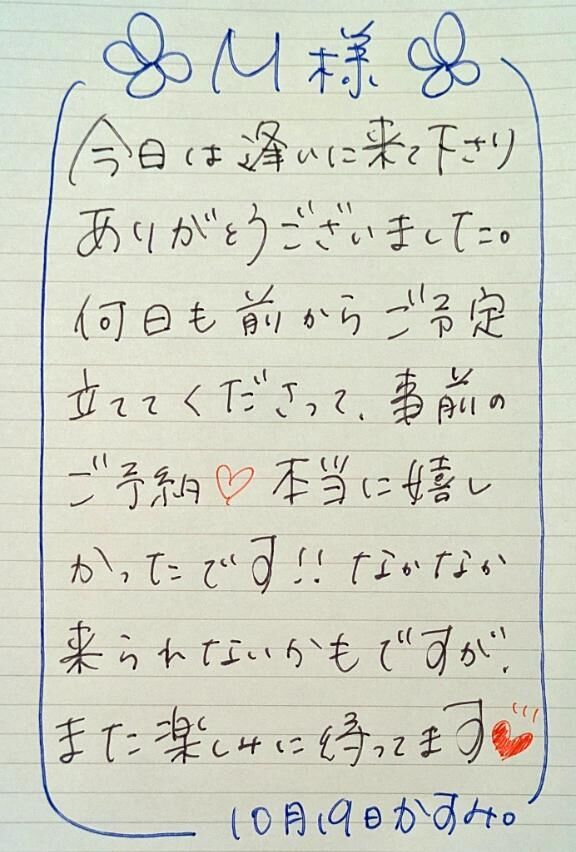 M様
今日は逢いに来て下さり
ありがとうございました。
何日も前からご予定
立ててくださって、事前の
ご予納♡本当に嬉し
かったです!!なかなか
来られないかもですが、
また楽しみに待ってます♥
10月19日かすみ。